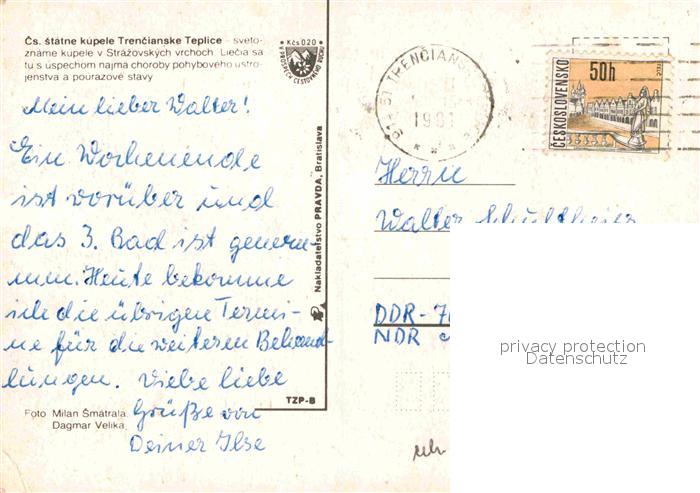 Čs. štátne kúpele Trenčianske Teplice - sveto-
známe kúpele v Strážovských vrchoch. Liečia sa
tu s úspechom najmä choroby pohybového ustro-
jenstva a poúrazové stavy
Kčs 0,20
PRÍSPEVOK CESTOVNÉHO RUCHU
Mein lieber Walter!
Ein Wochenende
ist vorüber und
das 3. Bad ist genom-
men. Heute bekomme
ich die übrigen Termi-
ne für die weiteren Behand-
lungen. Viele liebe
Grüße von
Deiner Ilse
Foto Milan Šmátrala
Dagmar Veliká
Nakladateľstvo PRAVDA, Bratislava
TZP-B
1981
ČESKOSLOVENSKO
50h
Herrn
Walter
DDR-
NDR
privacy protection
Datenschutz